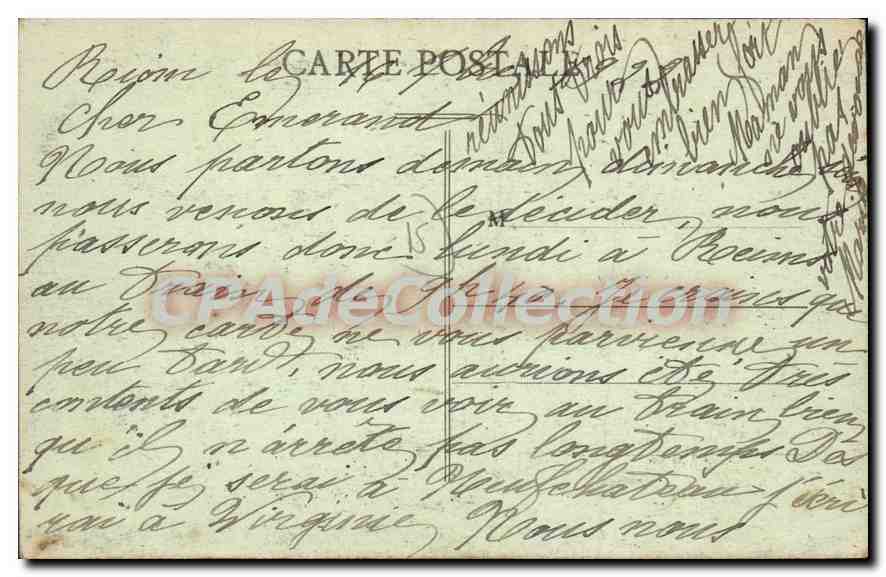 CARTE POSTALE
Riom le
Cher Emerand
Nous partons demain dimanche
nous venons de le décider, nous
M
passerons donc lundi à Reims
15
au train de 9h Je crains que
notre carte ne vous parvienne un
peu tard, nous aurions été très
contents de vous voir au train bien
qu'il n'arrête pas longtemps Dès
que je serai à Neufchateau j'écri
rai à Virginie, Nous nous
réunissons
tous trois
pour
vous
embrasser
bien fort
Maman
ne vous
oublie
pas
votre
CPAdeCollection